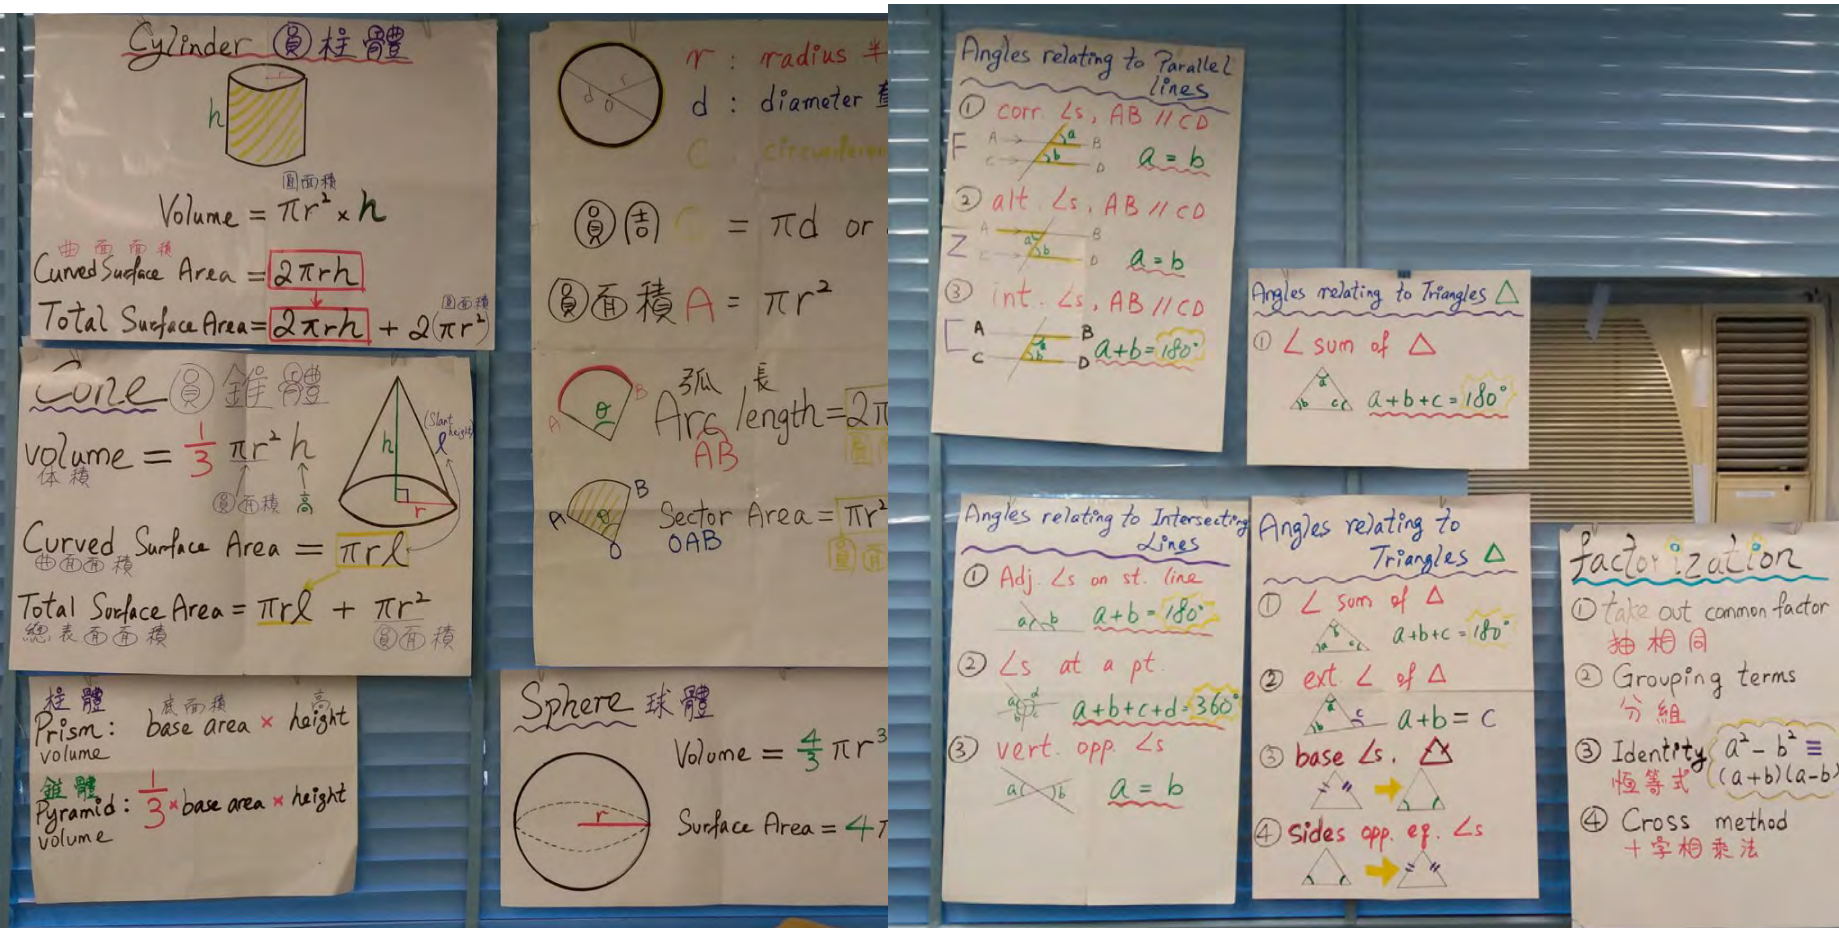 Cylinder 圓柱體
r
h
圓面積
Volume = πr² × h
曲面面積
Curved Surface Area = 2πrh
圓面積
Total Surface Area = 2πrh + 2(πr²)
Cone 圓錐體
(Slant height)
l
h
r
volume = 1/3 πr² h
体積
圓面積 高
Curved Surface Area = πrl
曲面面積
Total Surface Area = πrl + πr²
總表面面積 圓面積
柱體 底面積 高
Prism: base area × height
volume
錐體
Pyramid: 1/3 × base area × height
volume
r
d
O
r : radius 半
d : diameter
C circumferen
圓周 C = πd or
圓面積 A = πr²
弧 長
A B θ
Arc length = 2π
AB
圓
A B θ O
Sector Area = πr²
OAB
圓面
Sphere 球體
Volume = 4/3 πr³
r
Surface Area = 4π
Angles relating to Parallel
lines
① corr. ∠s, AB // CD
F A B C D a b
a = b
② alt. ∠s, AB // CD
Z A B C D a b
a = b
③ int. ∠s, AB // CD
A B C D a b
a + b = 180°
Angles relating to Triangles △
① ∠ sum of △
a b c
a + b + c = 180°
Angles relating to Intersecting
Lines
① Adj. ∠s on st. line
a b a + b = 180°
② ∠s at a pt.
a b c d a + b + c + d = 360°
③ vert. opp. ∠s
a b a = b
Angles relating to
Triangles △
① ∠ sum of △
a b c a + b + c = 180°
② ext. ∠ of △
a b c a + b = c
③ base ∠s, △
④ sides opp. eq. ∠s
factorization
① take out common factor
抽相同
② Grouping terms
分組
③ Identity a² − b² ≡
恒等式 (a+b)(a−b)
④ Cross method
十字相乘法